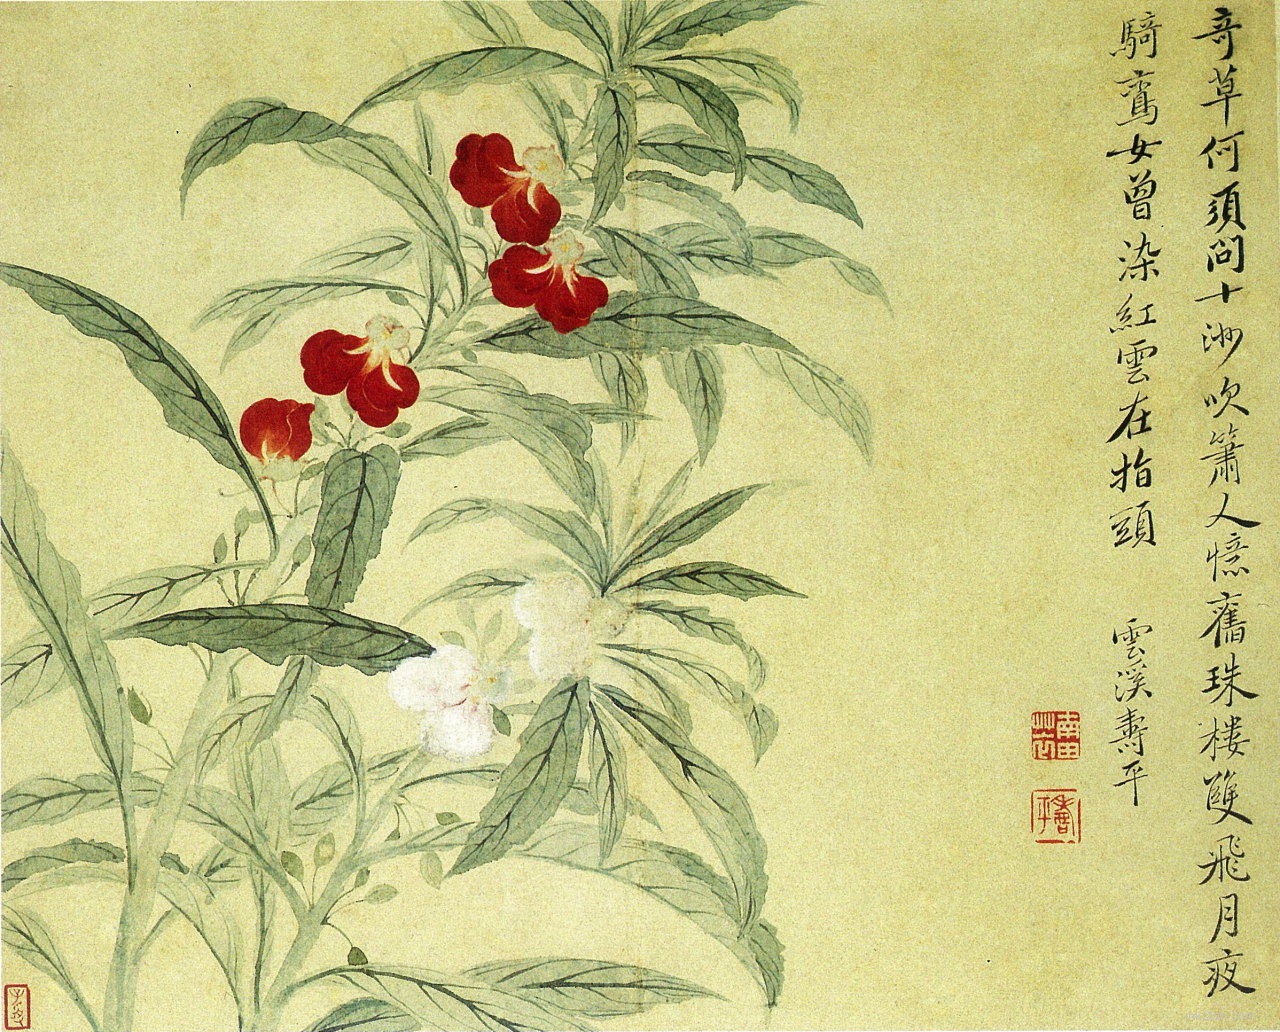 奇草何須問十洲吹簫人憶舊珠樓雙飛月夜
騎鸞女曾染紅雲在指頭
雲溪壽平
南田
壽平